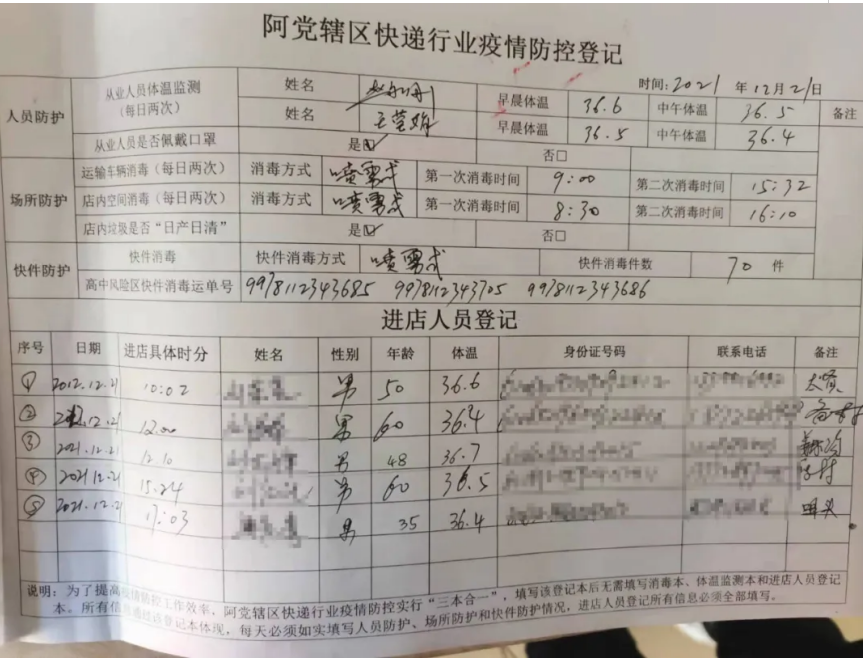 阿党辖区快递行业疫情防控登记
时间:2021 年12月21日
人员防护 从业人员体温监测(每日两次) 姓名 早晨体温 36.6 中午体温 36.5 备注
姓名 早晨体温 36.5 中午体温 36.4
从业人员是否佩戴口罩 是☑ 否□
场所防护 运输车辆消毒(每日两次) 消毒方式 喷雾式 第一次消毒时间 9:00 第二次消毒时间 15:32
店内空间消毒(每日两次) 消毒方式 喷雾式 第一次消毒时间 8:30 第二次消毒时间 16:10
店内垃圾是否“日产日清” 是☑ 否□
快件防护 快件消毒 快件消毒方式 喷雾式 快件消毒件数 70 件
高中风险区快件消毒运单号 9978112343685 9978112343705 9978112343686
进店人员登记
序号 日期 进店具体时分 姓名 性别 年龄 体温 身份证号码 联系电话 备注
① 2012.12.21 10:02 男 50 36.6
② 12.21 12.00 男 60 36.4
③ 2021.12.21 12.10 男 48 36.7
④ 2021.12.21 15.24 男 60 36.5
⑤ 2021.12.21 17:03 男 35 36.4
说明:为了提高疫情防控工作效率,阿党辖区快递行业疫情防控实行“三本合一”,填写该登记本后无需填写消毒本、体温监测本和进店人员登记
本。所有信息通过该登记本体现,每天必须如实填写人员防护、场所防护和快件防护情况,进店人员登记所有信息必须全部填写。